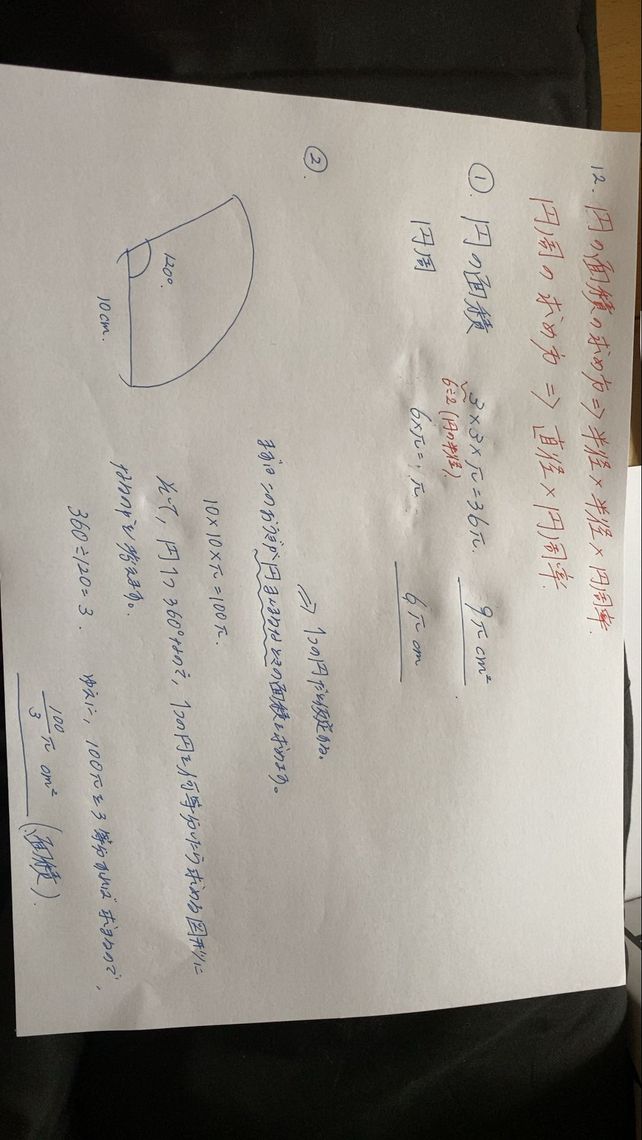 12. 円の面積の求め方 ⇒ 半径 × 半径 × 円周率.
円周の求め方 ⇒ 直径 × 円周率.
① 円の面積 3×3×π=36π. 9π cm²
6÷2 (円の半径)
円周 6×π= π 6π cm
②.
120°.
10cm.
⇒ 1つの円で仮定する。
まずはこのおうぎが円であるときの面積を求めます。
10×10×π=100π.
次に、円1つ360°なので、1つの円を何等分したら求める図形に
なるのかを求めます。
360÷120=3. ゆえに、100πを3等分すれば求まるので、
100/3 π cm² (面積).